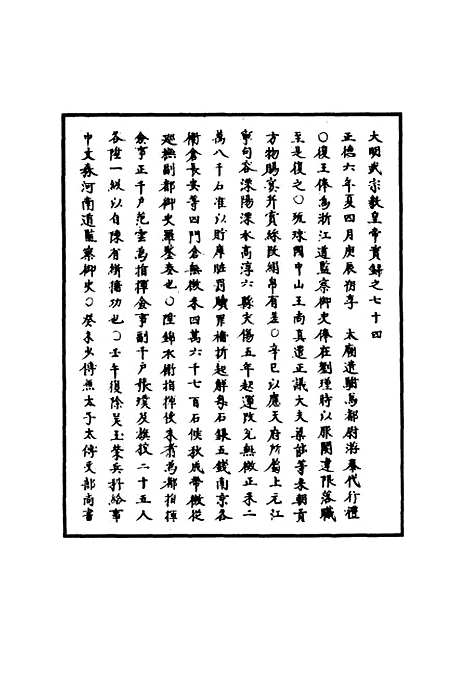 大明武宗毅皇帝實錄之七十四
正德六年夏四月庚辰朔享　太廟遣駙馬都尉游泰代行禮
○復王倬為浙江道監察御史倬在劉瑾時以服闋違限落職
至是復之○琉球國中山王尚真遣正議大夫梁能等來朝貢
方物賜宴并賞綵段絹帛有差○辛巳以應天府所屬上元江
寧句容溧陽溧水高淳六縣災傷五年起運改兌無徵正米二
萬八千石准以貯庫贓罰贖罪糧折起解每石銀五錢南京各
衛倉長安等四門倉無徵米四萬六千七百石候秋成帶徵從
巡撫副都御史羅鑒奏也○陞錦衣衛指揮使朱者為都指揮
僉事正千戶范雲為指揮僉事副千戶張瓚及旗校二十五人
各陞一級以自陳有緝捕功也○壬午復除吳玉榮兵科給事
中文森河南道監察御史○癸未少傅兼太子太傅吏部尚書